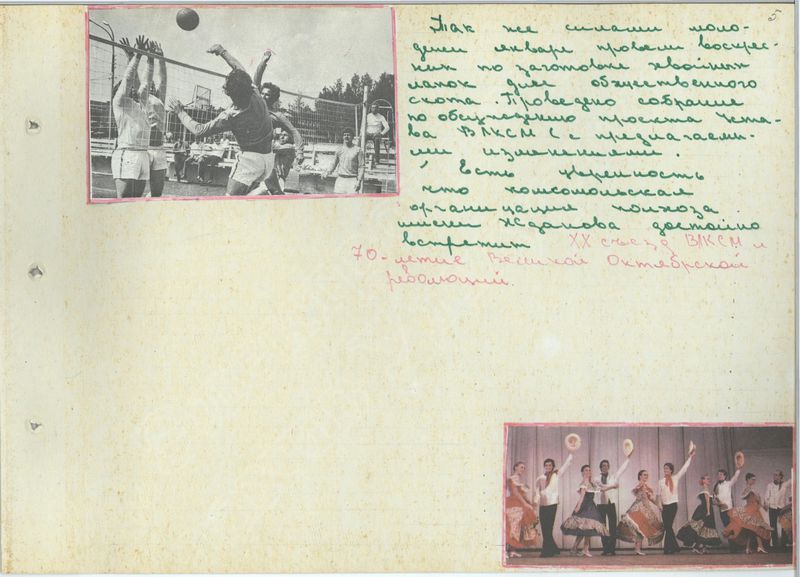 5
Так же силами моло-
дежи января провели воскрес-
ник по заготовке хвойных
лапок для общественного
скота. Проведено собрание
по обсуждению проекта Уста-
ва ВЛКСМ с предлагаемы-
ми изменениями.
Есть уверенность
что комсомольская
организация колхоза
имени Жданова достойно
встретит XX съезд ВЛКСМ и
70-летие Великой Октябрской
революции.